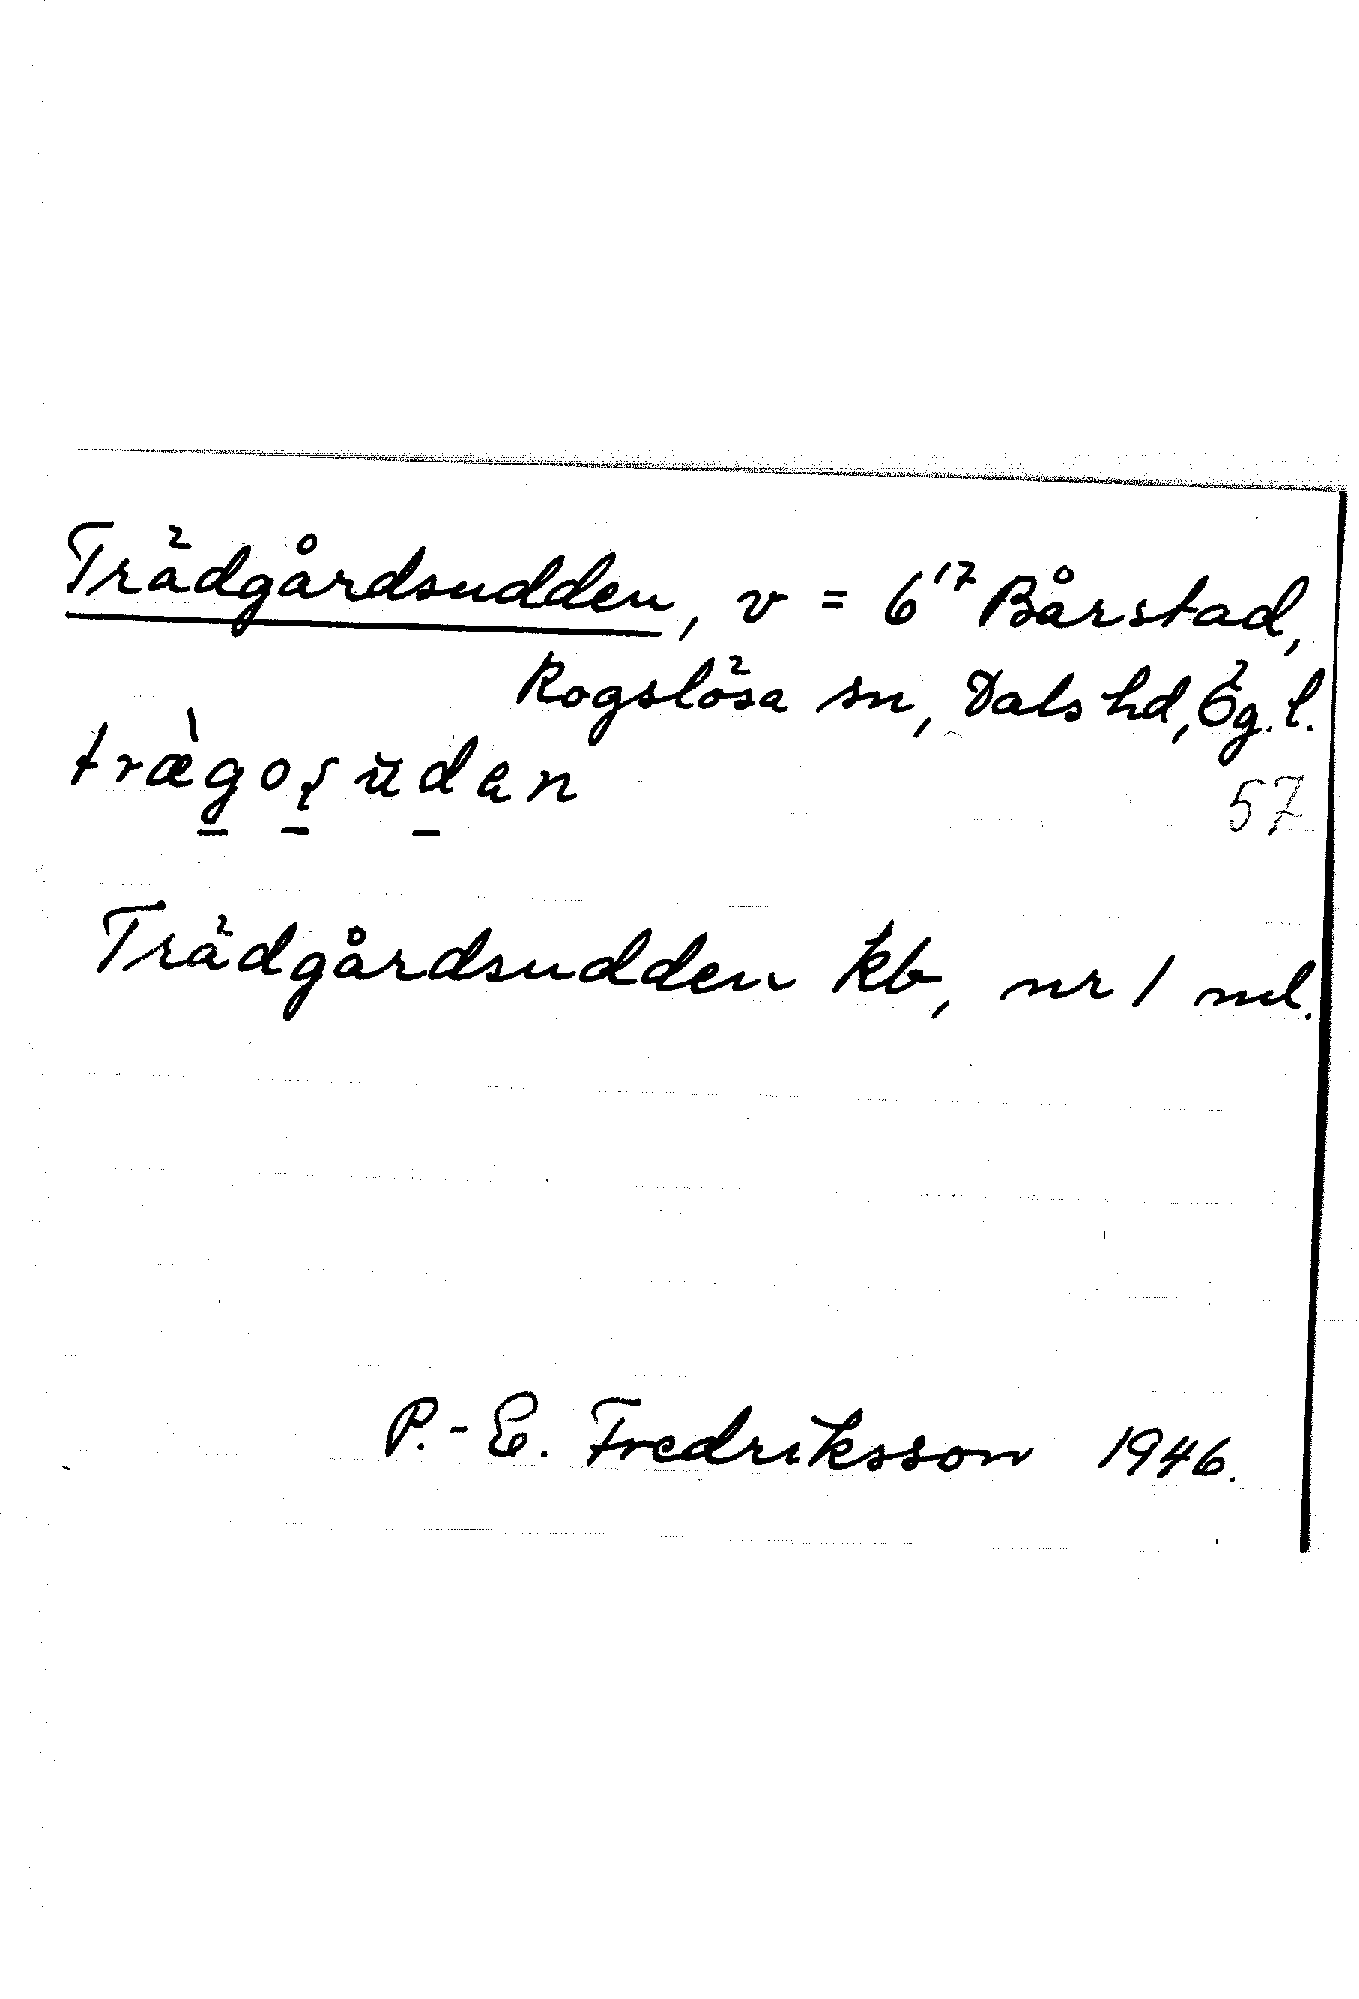 Trädgårdsudden, v = 6¹⁷ Bårstad,
Rogslösa sn, Dals hd, Ög. l.
57
Trädgårdsudden kb, nr 1 ml.
P.-E. Fredriksson 1946.